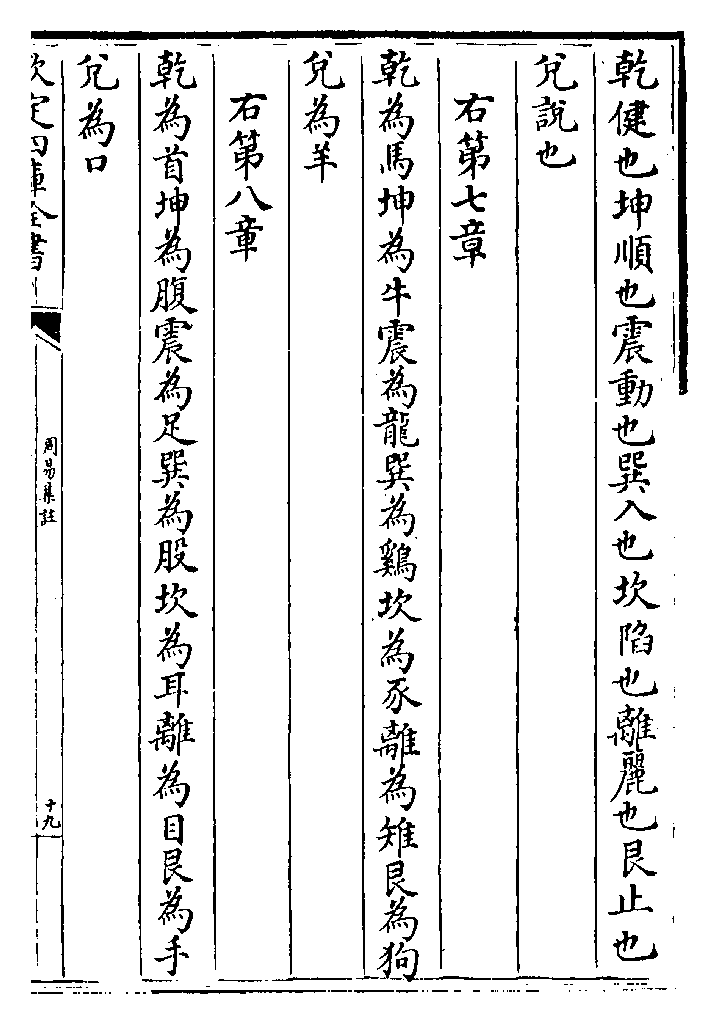 乾健也坤順也震動也巽入也坎陷也離麗也艮止也
兌說也
右第七章
乾為馬坤為牛震為龍巽為鷄坎為豕離為雉艮為狗
兌為羊
右第八章
乾為首坤為腹震為足巽為股坎為耳離為目艮為手
兌為口
欽定四庫全書
周易集註
十九